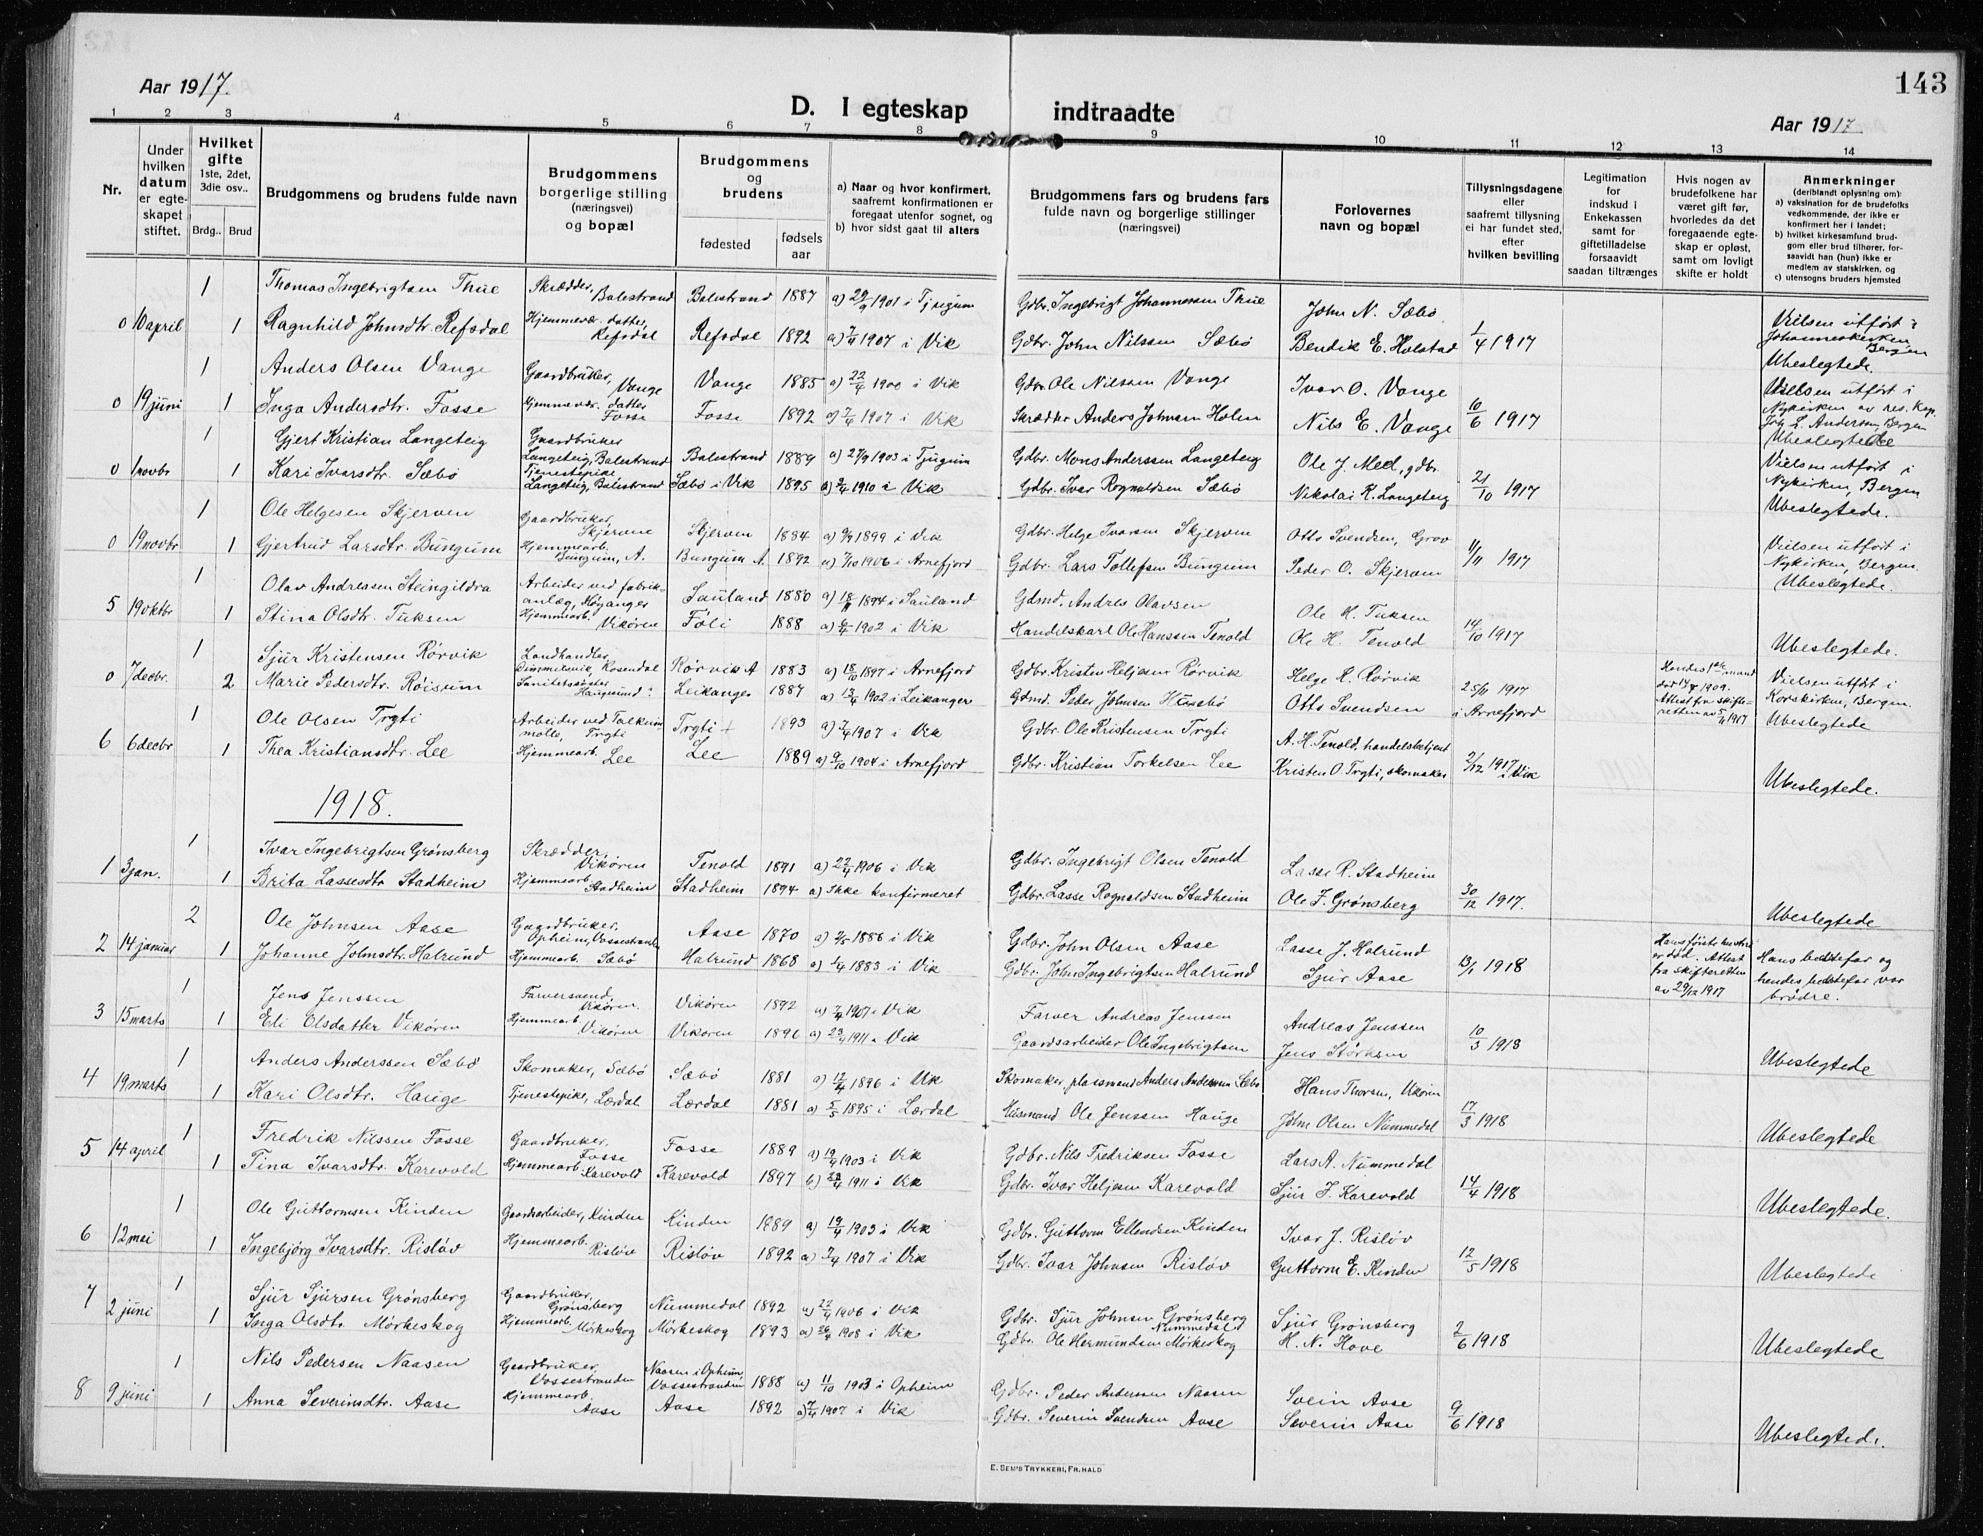 143
Aar 1917.
D. I egteskap indtraadte
Aar 1917
1 2 3 4 5 6 7 8 9 10 11 12 13 14
Nr.
Under hvilken datum er egteskapet stiftet.
Hvilket gifte 1ste, 2det, 3die osv..
Brdg.. Brud
Brudgommens og brudens fulde navn
Brudgommens borgerlige stilling (næringsvei) og bopæl
Brudgommens og brudens
fødested
fødsels aar
a) Naar og hvor konfirmert, saafremt konfirmationen er foregaat utenfor sognet, og
b) hvor sidst gaat til alters
Brudgommens fars og brudens fars fulde navn og borgerlige stillinger (næringsvei)
Forlovernes navn og bopæl
Tillysningsdagene eller saafremt tillysning ei har fundet sted, efter hvilken bevilling
Legitimation for indskud i Enkekassen samt for giftetilladelse forsaavidt saadan tiltrænges
Hvis nogen av brudefolkene har været gift før, hvorledes da det foregaaende egteskap er opløst, samt om lovligt skifte er holdt
Anmerkninger (deriblandt oplysning om):
a) vaksination for de brudefolks vedkommende, der ikke er konfirmert her i landet;
b) hvilket kirkesamfund brudgom eller brud tilhører, forsaavidt han (hun) ikke er medlem av statskirken, og
c) utensogns bruders hjemsted
1 Thomas Ingebrigtsen Thue Skrædder, Balestrand Balestrand 1887 a) 29/9 1901 i Tjugum Gdbr. Ingebrigt Johannessen Thue John N. Sæbø
0 10 april 1 Ragnhild Johnsdtr. Refsdal Hjemmevær. datter, Refsdal Refsdal 1892 a) 7/4 1907 i Vik Gdbr. John Nilssen Sæbø Bendik E. Holstad 1/4 1917 Vielsen utført i Johanneskirken Bergen Ubeslegtede.
1 Anders Olsen Vange Gaardbruker, Vange Vange 1885 a) 22/4 1900 i Vik Gdbr. Ole Nilssen Vange Ivar O. Vange
0 19 juni 1 Inga Andersdtr. Fosse Hjemmevær. datter Fosse Fosse 1892 a) 7/4 1907 i Vik Skrædder Anders Johnsen Holen Nils E. Vange 10/6 1917 Vielsen utført i Nykirken av res. kap. Joh. L. Andersen, Bergen Ubeslegtede
1 Gjert Kristian Langeteig Gaardbruker Langeteig, Balestrand Balestrand 1889 a) 27/9 1903 i Tjugum Gdbr. Mons Anderssen Langeteig Ole J. Med, gdbr.
0 1 novbr 1 Kari Ivarsdtr. Sæbø Tjenestepike Langeteig, Balestrand Sæbø i Vik 1895 a) 3/4 1910 i Vik Gdbr. Ivar Rognaldsen Sæbø Nikolai R. Langeteig 21/10 1917 Vielsen utført i Nykirken, Bergen Ubeslegtede.
1 Ole Helgesen Skjerven Gaardbruker, Skjervene Skjerven 1884 a) 9/4 1899 i Vik Gdbr. Helge Ivarsen Skjerven Otto Svendsen, Grov
0 19 novbr 1 Gjertrud Larsdtr. Bungum Hjemmearb. Bungum, A. Bungum A. 1892 a) 7/10 1906 i Arnefjord Gdbr. Lars Tollefsen Bungum Peder O. Skjerven 11/11 1917 Vielsen utført i Nykirken, Bergen. Ubeslegtede.
1 Olav Andressen Steingildra Arbeider ved fabrikanlæg, Høyanger Sauland 1880 a) 18/11 1894 i Sauland Gdmd. Andres Olavsen Ole H. Tuksen
5 19 oktbr 1 Stina Olsdtr. Tuksen Hjemmearb. Vikøren Føli 1888 a) 6/4 1902 i Vik Handelskarl Ole Hanssen Tenold Ole H. Tenold 14/10 1917 Ubeslegtede.
1 Sjur Kristensen Rørvik Landhandler, Dimmelsvik, Rosendal Rørvik A 1883 a) 18/10 1897 i Arnefjord Gdbr. Kristen Heljesen Rørvik Helge K. Rørvik
0 7 decbr. 2 Marie Pedersdtr. Røisum Sanitetssøster Haugesund Leikanger 1887 a) 13/4 1902 i Leikanger Gdmd. Peder Johnsen Hunsbø Otto Svendsen 25/11 1917 i Arnefjord Hendes 1ste mand død 14/7 1909. Attest fra skifteretten av 5/11 1917 Vielsen utført i Korskirken, Bergen. Ubeslegtede
1 Ole Olsen Trgti Arbeider ved Talkummølle, Trgti Trgti 1893 a) 7/4 1907 i Vik Gdbr. Ole Kristensen Trgti A. H. Tenold, handelsbetjent
6 6 decbr 1 Thea Kristiansdtr. Lee Hjemmearb. Lee Lee 1889 a) 9/10 1904 i Arnefjord Gdbr. Kristian Torkelsen Lee Kristen O. Trgti, skomaker 2/12 1917 i Vik Ubeslegtede.
1918.
1 Ivar Ingebrigtsen Grønsberg Skrædder, Vikøren Tenold 1891 a) 22/4 1906 i Vik Gdbr. Ingebrigt Olsen Tenold Lasse R. Stadheim
1 3 jan. 1 Brita Lassesdtr Stadheim Hjemmearb. Stadheim Stadheim 1894 a) Ikke konfirmeret Gdbr. Lasse Rognaldsen Stadheim Ole F. Grønsberg 30/12 1917. Ubeslegtede
2 Ole Johnsen Aase Gaardbruker, Opheim, Vossestranden Aase 1870 a) 2/5 1886 i Vik Gdbr. John Olsen Aase Lasse J. Halrund
2 14 januar 1 Johanne Johnsdtr. Halrund Hjemmearb. Sæbø Halrund 1868 a) 1/4 1883 i Vik Gdbr. John Ingebrigtsen Halrund Sjur Aase 13/1 1918 Hans første hustru er død. Attest fra skifteretten av 29/12 1917 Hans bestefar og hendes bestefar var brødre.
1 Jens Jenssen Farversvend Vikøren Vikøren 1892 a) 7/4 1907 i Vik Farver Andreas Jenssen Andreas Jenssen
3 15 marts 1 Eli Olsdatter Vikøren Hjemmearb. Vikøren Vikøren 1896 a) 23/4 1911 i Vik Gaardsarbeider Ole Ingebrigtsen Jens Størksen 10/3 1918 Ubeslegtede
1 Anders Anderssen Sæbø Skomaker, Sæbø Sæbø 1881 a) 12/4 1896 i Vik Skomaker, plassmand Anders Anderssen Sæbø Hans Thorsen, Vikøren
4 19 marts 1 Kari Olsdtr. Hauge Tjenestepike, Lærdal Lærdal 1881 a) 5/5 1895 i Lærdal Husmand Ole Jenssen Hauge John Olsen Nummedal 17/3 1918 Ubeslegtede
1 Fredrik Nilssen Fosse Gaardbruker, Fosse Fosse 1889 a) 19/4 1903 i Vik Gdbr. Nils Fredriksen Fosse Lars A. Nummedal
5 14 april 1 Tina Ivarsdtr. Karevold Hjemmearb. Karevold Karevold 1897 b) 23/4 1911 i Vik Gdbr. Ivar Heljesen Karevold Sjur J. Karevold 14/4 1918 Ubeslegtede.
1 Ole Guttormsen Kinden Gaardsarbeider, Kinden Kinden 1889 a) 19/4 1903 i Vik Gdbr. Guttorm Ellendsen Kinden Ivar J. Risløv
6 12 mai 1 Ingebjørg Ivarsdtr. Risløv Hjemmearb. Risløv Risløv 1892 a) 7/4 1907 i Vik Gdbr. Ivar Johnsen Risløv Guttorm E. Kinden 12/5 1918 Ubeslegtede
1 Sjur Sjursen Grønsberg Gaardbruker, Grønsberg Nummedal 1892 a) 22/4 1906 i Vik Gdbr. Sjur Johnsen Grønsberg Nummedal Sjur Grønsberg
7 2 juni 1 Inga Olsdtr. Mørkeskog Hjemmearb. Mørkeskog Mørkeskog 1893 a) 26/4 1908 i Vik Gdbr. Ole Hermundsen Mørkeskog H. N. Hove 2/6 1918 Ubeslegtede
1 Nils Pedersen Naasen Gaardbruker, Vossestranden Naasen i Opheim, Vossestranden 1888 a) 11/10 1903 i Opheim Gdbr. Peder Anderssen Naasen Svein Aase
8 9 juni 1 Anna Severinsdtr. Aase Hjemmearb. Aase Aase 1892 a) 7/4 1907 i Vik Gdbr. Severin Svendsen Aase Severin Aase 9/6 1918 Ubeslegtede.
E. SEM'S TRYKKERI, FR.HALD